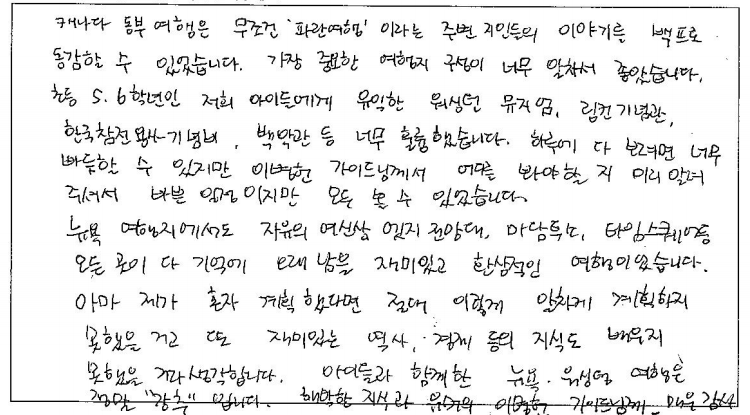 캐나다 동부 여행은 무조건 '파란여행' 이라는 주변 지인들의 이야기를 백프로
동감할 수 있었습니다. 가장 중요한 여행지 구성이 너무 알차서 좋았습니다.
초등 5.6학년인 저희 아이들에게 유익한 워싱턴 뮤지엄, 링컨기념관,
한국참전용사기념비, 백악관 등 너무 훌륭했습니다. 하루에 다 보려면 너무
빠듯할 수 있지만 이병헌 가이드님께서 어디를 봐야할 지 미리 알려
주셔서 바쁜 일정이지만 모두 볼 수 있었습니다.
뉴욕 여행지에서도 자유의 여신상, 엣지 전망대, 마담투소, 타임스퀘어등
모든 곳이 다 기억에 오래 남을 재미있고 환상적인 여행이었습니다.
아마 제가 혼자 계획했다면 절대 이렇게 알차게 계획하지
못했을 거고 또 재미있는 역사, 경제 등의 지식도 배우지
못했을 거라 생각합니다. 아이들과 함께한 뉴욕. 워싱턴 여행은
정말 "강추" 입니다. 해박한 지식과 가이드님께 매우 감사